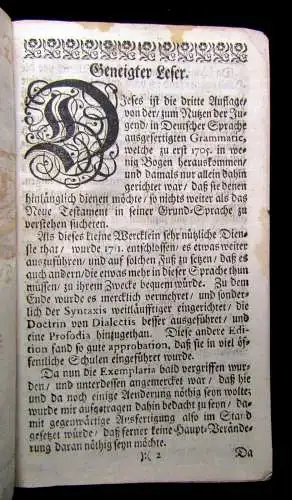 Geneigter Leser.
Dieses ist die dritte Auflage/
von der/ zum Nutzen der Ju-
gend/ in Deutscher Sprache
ausgefertigten Grammatic,
welche zu erst 1705. in we-
nig Bogen herauskommen/
und damals nur allein dahin
gerichtet war/ daß sie denen
hinlänglich dienen möchte/ so nichts weiter als das
Neue Testament in seiner Grund-Sprache zu
verstehen sucheten.
Als dieses kleine Wercklein sehr nützliche Dien-
ste that/ wurde 1711. entschlossen/ es etwas weiter
auszuführen/ und auf solchen Fuß zu setzen/ daß es
auch andern/ die etwas mehr in dieser Sprache thun
müssen/ zu ihrem Zwecke bequem würde. Zu dem
Ende wurde es mercklich vermehret/ und sonder-
lich der Syntaxis weitläuffiger eingerichtet/ die
Doctrin von Dialectis besser ausgeführet/ und
eine Prosodia hinzugethan. Diese andere Edi-
tion fand so gute approbation, daß sie in viel öf-
fentliche Schulen eingeführet wurde.
Da nun die Exemplaria bald vergriffen wur-
den/ und unterdessen angemercket war/ daß hie
und da noch einige Aenderung nöthig seyn wolte;
wurde mir aufgetragen dahin bedacht zu seyn/ da-
mit gegenwärtige Ausfertigung also im Stand
gesetzet würde/ daß ferner keine Haupt-Verände-
rung daran nöthig seyn möchte.
)( 2 Da